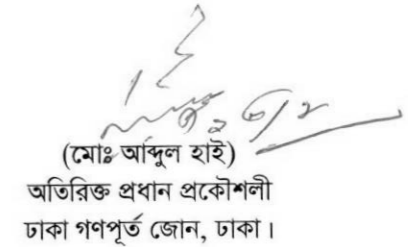 (মোঃ আব্দুল হাই)
অতিরিক্ত প্রধান প্রকৌশলী
ঢাকা গণপূর্ত জোন, ঢাকা।